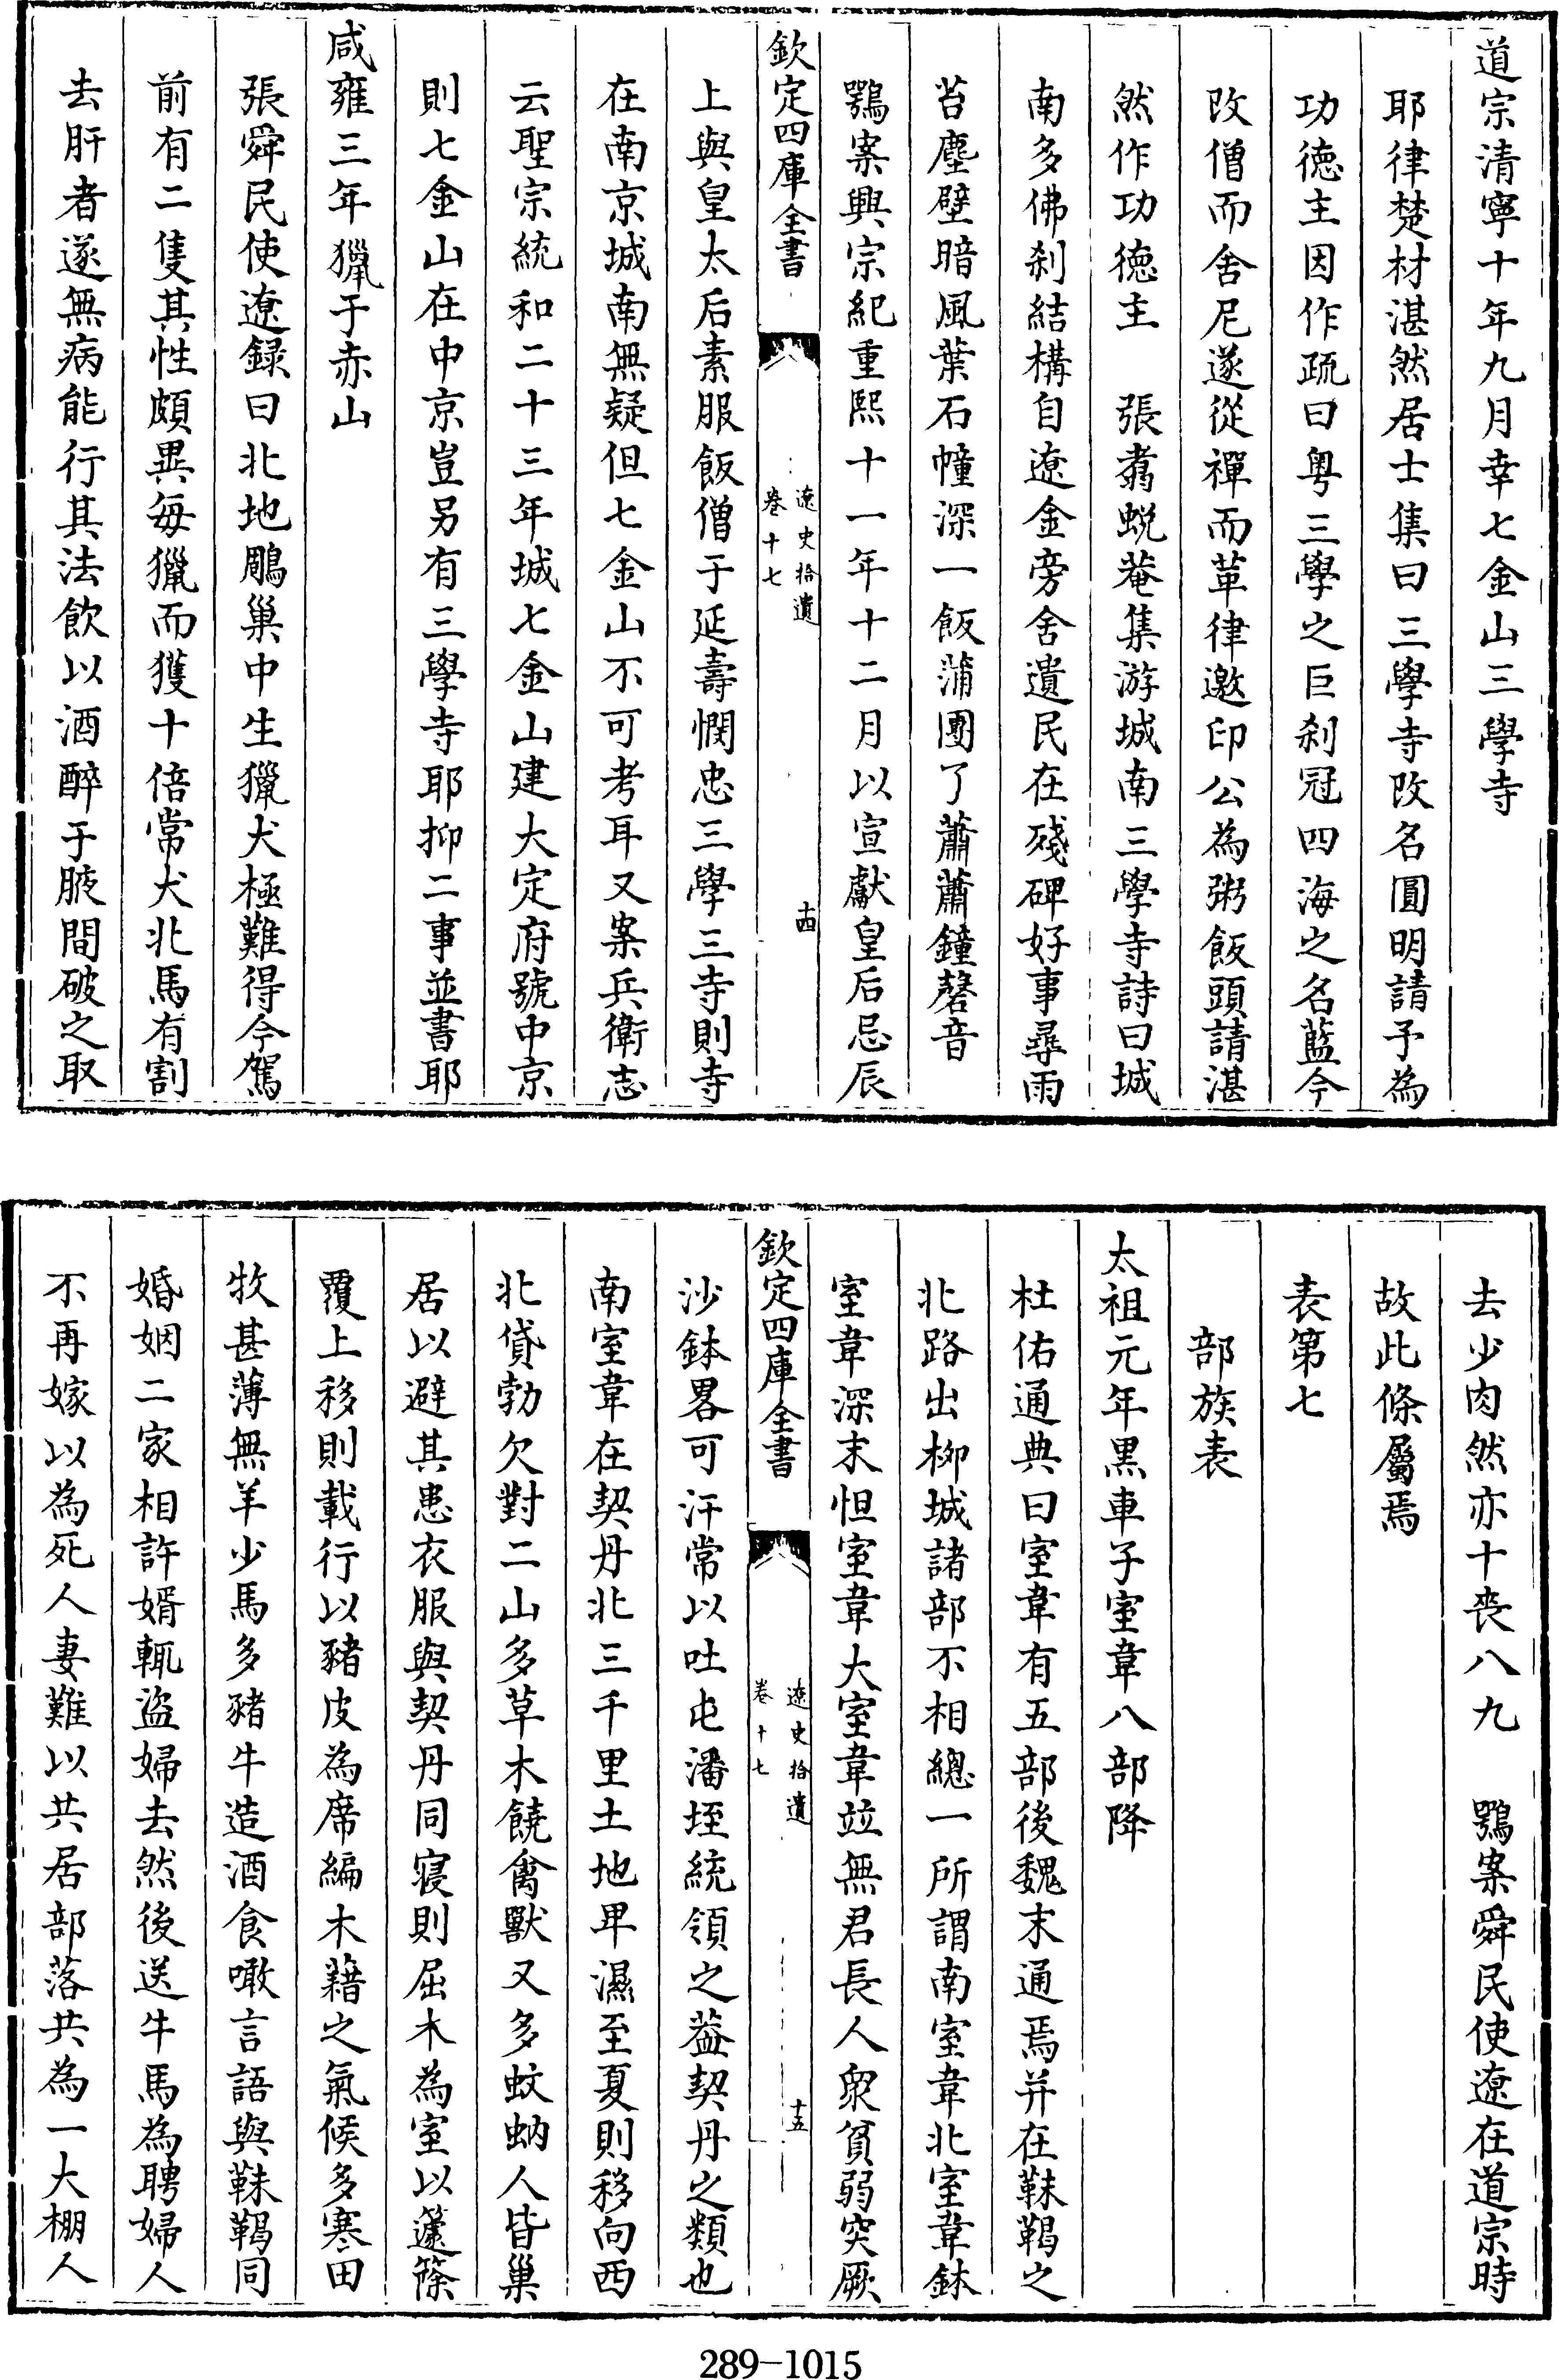 道宗清寧十年九月幸七金山三學寺
耶律楚材湛然居士集曰三學寺改名圓明請予為
功徳主因作疏曰粤三學之巨刹冠四海之名藍今
改僧而舍尼遂從禪而革律邀印公為粥飯頭請湛
然作功徳主　張翥蜕菴集游城南三學寺詩曰城
南多佛刹結構自遼金旁舍遺民在殘碑好事尋雨
苔塵壁暗風葉石幢深一飯蒲團了蕭蕭鐘磬音
鶚案興宗紀重熙十一年十二月以宣獻皇后忌辰
欽定四庫全書
遼史拾遺
卷十七
十四
上與皇太后素服飯僧于延壽憫忠三學三寺則寺
在南京城南無疑但七金山不可考耳又案兵衛志
云聖宗統和二十三年城七金山建大定府號中京
則七金山在中京豈另有三學寺耶抑二事並書耶
咸雍三年獵于赤山
張舜民使遼録曰北地鵰巢中生獵犬極難得今駕
前有二隻其性頗異每獵而獲十倍常犬北馬有割
去肝者遂無病能行其法飲以酒醉于腋間破之取
去少肉然亦十丧八九　鶚案舜民使遼在道宗時
故此條屬焉
表第七
部族表
太祖元年黑車子室韋八部降
杜佑通典曰室韋有五部後魏末通焉并在靺鞨之
北路出柳城諸部不相總一所謂南室韋北室韋鉢
室韋深末怛室韋大室韋竝無君長人衆貧弱突厥
欽定四庫全書
遼史拾遺
卷十七
十五
沙鉢畧可汗常以吐屯潘垤統領之葢契丹之類也
南室韋在契丹北三千里土地卑濕至夏則移向西
北貸勃欠對二山多草木饒禽獸又多蚊蚋人皆巢
居以避其患衣服與契丹同寝則屈木為室以籧篨
覆上移則載行以豬皮為席編木藉之氣候多寒田
牧甚薄無羊少馬多豬牛造酒食噉言語與靺鞨同
婚姻二家相許婿輒盜婦去然後送牛馬為聘婦人
不再嫁以為死人妻難以共居部落共為一大棚人
289-1015